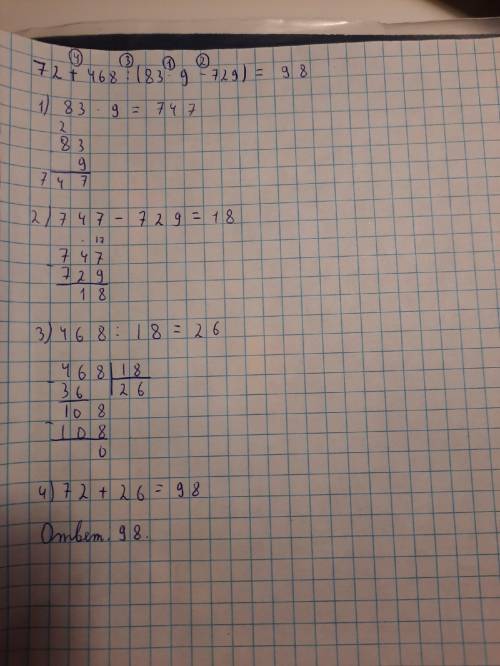 ④ ③ ① ②
72 + 468 : (83 · 9 - 729) = 98
1) 83 · 9 = 747
2
83
9
747
2) 747 - 729 = 18
· 17
- 747
729
18
3) 468 : 18 = 26
- 468 | 18
36 | 26
108
- 108
0
4) 72 + 26 = 98
Ответ. 98.